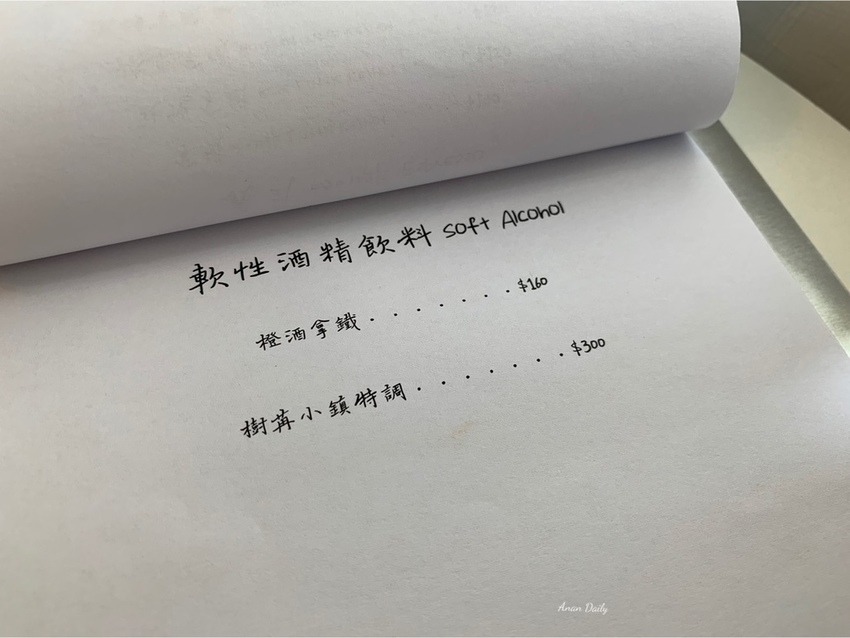 軟性酒精飲料 soft Alcohol
橙酒拿鐵·······$160
樹苒小鎮特調·······$300
Anan Daily